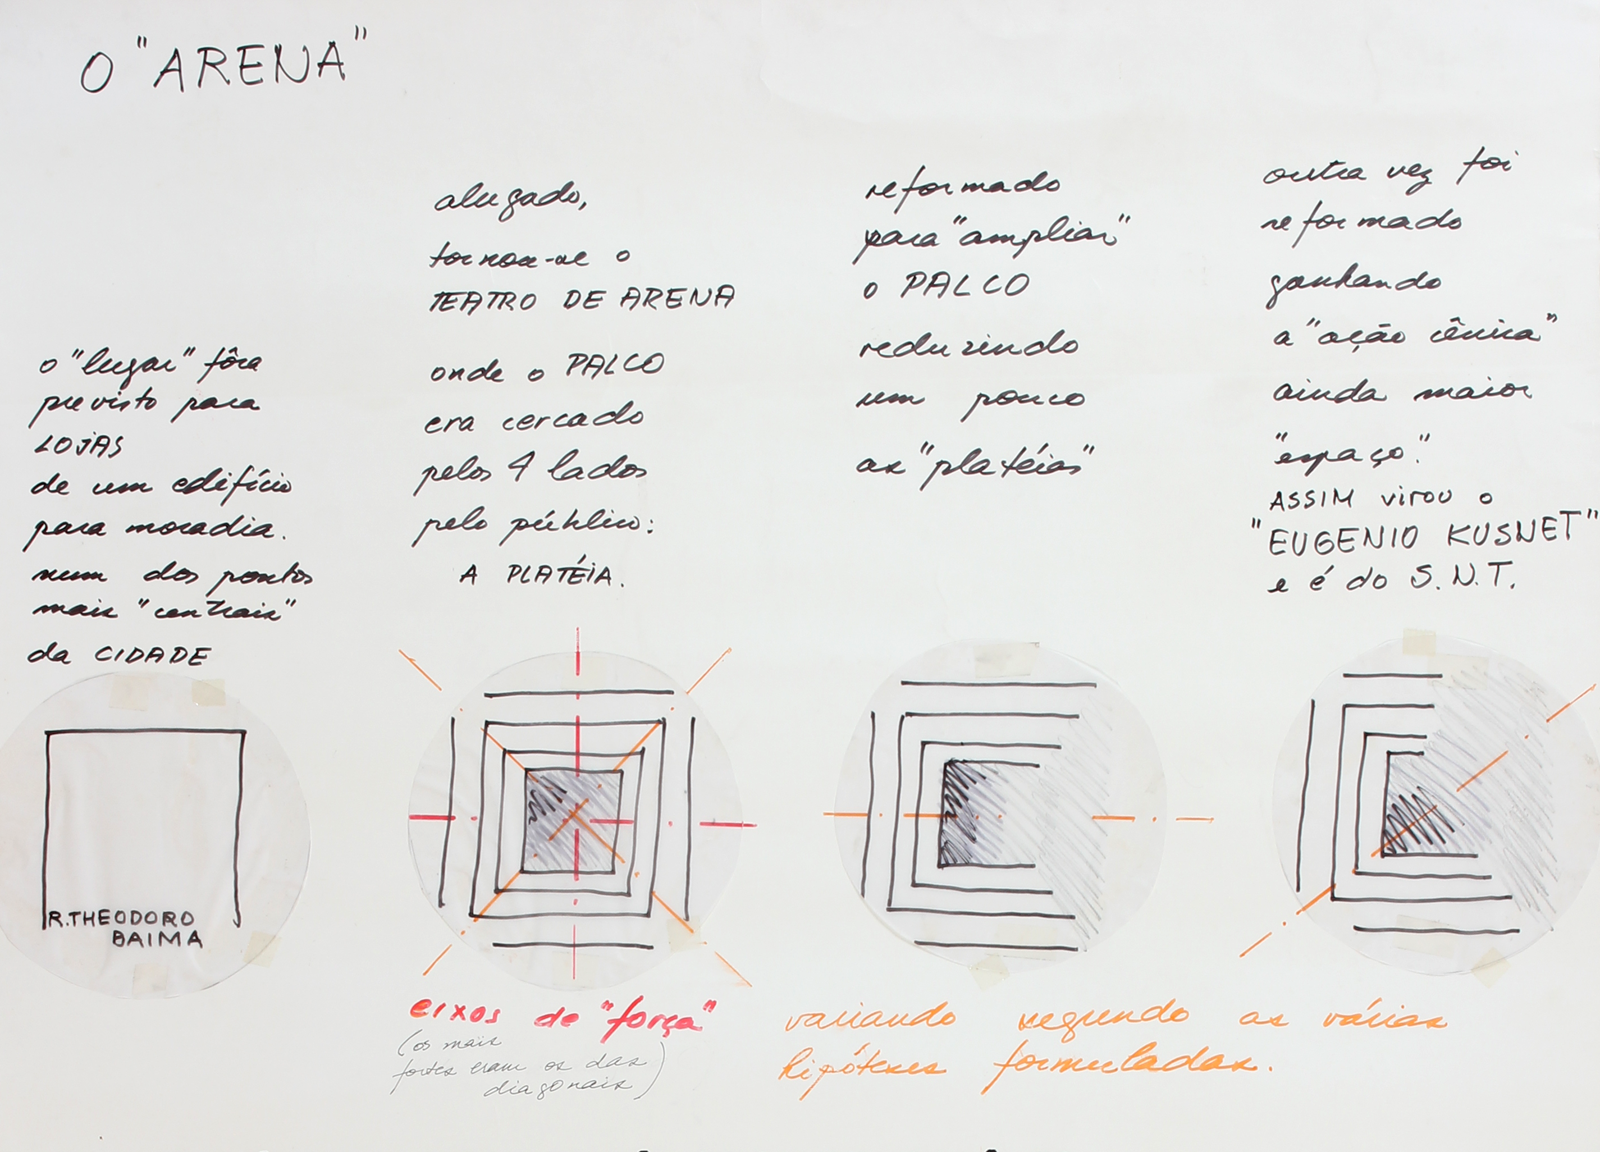 O "ARENA"
o "lugar" fôra
previsto para
LOJAS
de um edifício
para moradia.
num dos pontos
mais "centrais"
da CIDADE
R.THEODORO
BAIMA
alugado,
tornou-se o
TEATRO DE ARENA
onde o PALCO
era cercado
pelos 4 lados
pelo público:
A PLATÉIA.
eixos de "força"
(os mais
fortes eram os das
diagonais)
reformado
para "ampliar"
o PALCO
reduzindo
um pouco
as "platéias"
outra vez foi
reformado
ganhando
a "ação cênica"
ainda maior
"espaço".
ASSIM virou o
"EUGENIO KUSNET"
e é do S.N.T.
variando segundo as várias
hipóteses formuladas.